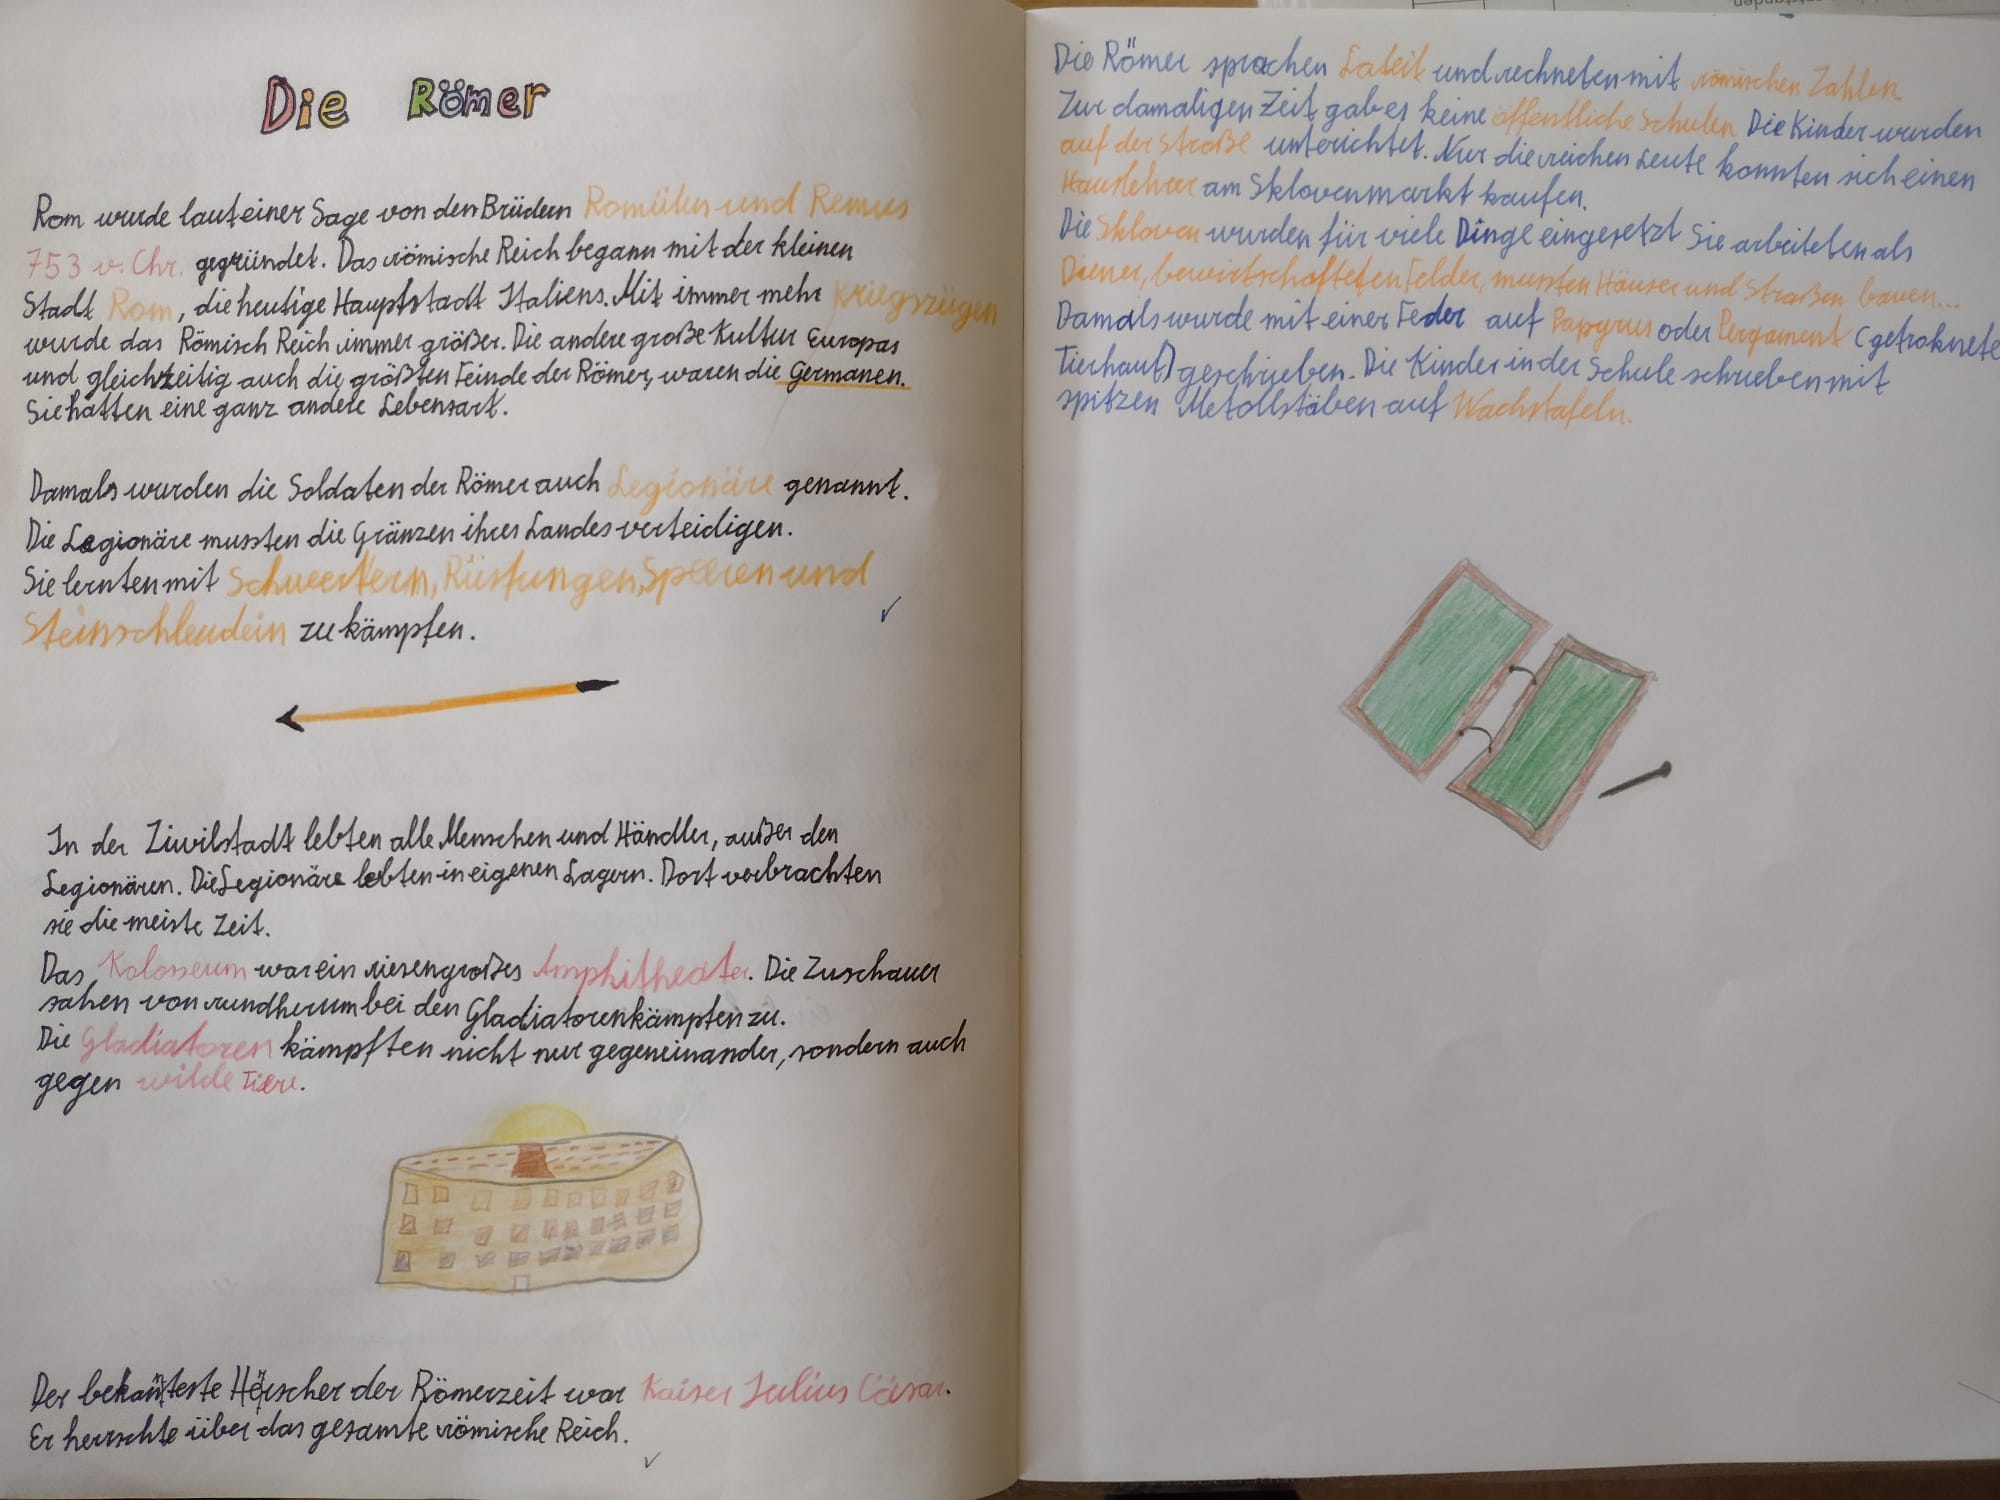 Die Römer
Rom wurde laut einer Sage von den Brüdern Romülus und Remus
753 v. Chr. gegründet. Das römische Reich begann mit der kleinen
Stadt Rom, die heutige Hauptstadt Italiens. Mit immer mehr Kriegszügen
wurde das Römisch Reich immer größer. Die andere große Kultur Europas
und gleichzeitig auch die größten Feinde der Römer, waren die Germanen.
Sie hatten eine ganz andere Lebensart.
Damals wurden die Soldaten der Römer auch Legionäre genannt.
Die Legionäre mussten die Gränzen ihres Landes verteidigen.
Sie lernten mit Schwertern, Rüstungen, Speeren und
Steinschleudern zu kämpfen.
In der Ziwilstadt lebten alle Menschen und Händler, außer den
Legionären. Die Legionäre lebten in eigenen Lagern. Dort verbrachten
sie die meiste Zeit.
Das Kolosseum war ein riesengroßes Amphitheater. Die Zuschauer
sahen von rundherum bei den Gladiatorenkämpfen zu.
Die Gladiatoren kämpften nicht nur gegeneinander, sondern auch
gegen wilde Tiere.
Der bekannteste Herscher der Römerzeit war Kaiser Julius Cäsar.
Er herrschte über das gesamte römische Reich.
Die Römer sprachen Lateit und rechneten mit römischen Zahlen
Zur damaligen Zeit gab es keine öffentliche Schulen Die Kinder wurden
auf der Straße unterichtet. Nur die reichen Leute konnten sich einen
Hauslehrer am Sklavenmarkt kaufen.
Die Sklaven wurden für viele Dinge eingesetzt Sie arbeiteten als
Diener, bewirtschafteten Felder, mussten Häuser und Straßen bauen...
Damals wurde mit einer Feder auf Papyrus oder Pergament (getroknete
Tierhaut) geschrieben. Die Kinder in der Schule schrieben mit
spitzen Metallstäben auf Wachstafeln.